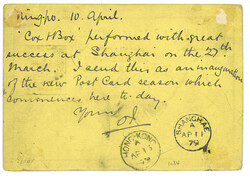 Ningpo. 10. April.
"Cox & Box" performed with great
success at Shanghai on the 27th
March. I send this as an inauguration
of the new Post Card season which
commences here to-day.
Yours
HONG-KONG
A
AP 11
79
SHANGHAE
A
AP 11
79